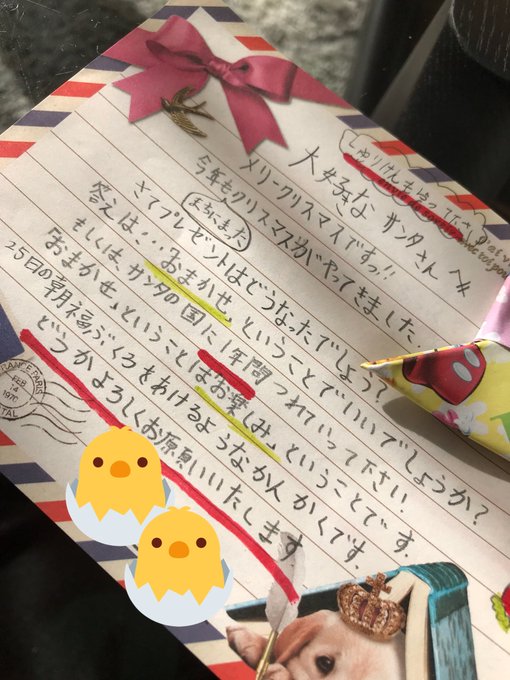 しゅりけんも使って下さ
大好きな サンタさんへ
メリークリスマスですっ!!
まちにまった
今年もクリスマスがやってきました
さてプレゼントはどうなったでしょう?
答えは…「おまかせ」ということでいいでしょうか?
もしくは、サンタの国に1年間つれていって下さい.
「おまかせ」ということは「お楽しみ」ということです.
25日の朝福ぶくろをあけるようなかんかくです.
どうかよろしくお願いいたします
RANCE PARIS
FEB.
14
1970
TAL